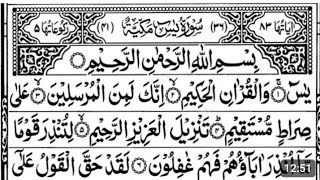 اٰيَاتُهَا ٨٣ (٣٦) سُوْرَةُ يٰسٓ مَكِّيَّةٌ (٤١) رُكُوْعَاتُهَا ٥
بِسْمِ اللّٰهِ الرَّحْمٰنِ الرَّحِيْمِ
يٰسٓ ۝١ وَالْقُرْاٰنِ الْحَكِيْمِ ۝٢ اِنَّكَ لَمِنَ الْمُرْسَلِيْنَ ۝٣ عَلٰى
صِرَاطٍ مُّسْتَقِيْمٍ ۝٤ تَنْزِيْلَ الْعَزِيْزِ الرَّحِيْمِ ۝٥ لِتُنْذِرَ قَوْمًا
مَّاۤ اُنْذِرَ اٰبَآؤُهُمْ فَهُمْ غٰفِلُوْنَ ۝٦ لَقَدْ حَقَّ الْقَوْلُ عَلٰٓى
12:51